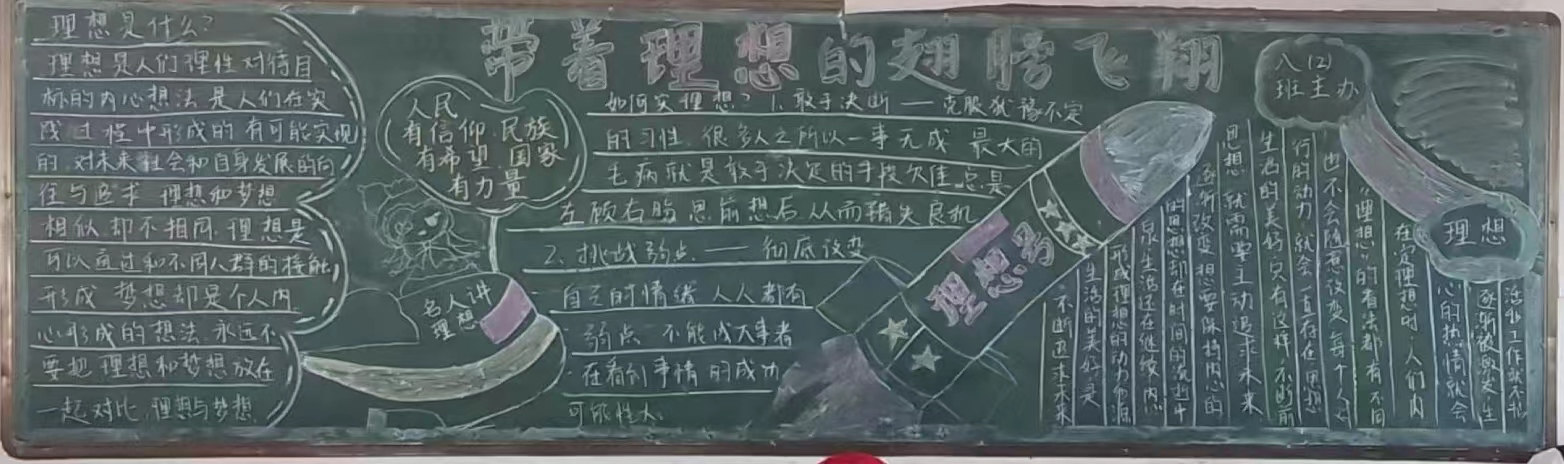 带着理想的翅膀飞翔
理想是什么?
理想是人们理性对待目
标的内心想法是人们在实
践过程中形成的有可能实现
的对未来社会和自身发展的向
往与追求 理想和梦想
相似却不相同 理想是
可以通过和不同人群的接触
形成 梦想却是个人内
心形成的想法 永远不
要把理想和梦想放在
一起对比,理想与梦想
人民
有信仰 民族
有希望 国家
有力量
名人讲
理想
如何实理想? 1.敢于决断——克服犹豫不定
的习性 很多人之所以一事无成 最大的
毛病就是敢于决定的手段欠佳总是
左顾右盼 思前想后 从而错失良机
2、挑战弱点——彻底改变
自己的情绪 人人都有
弱点 不能成大事者
在看到事情的成功
可能性大
理想号
八(2)
班主办
理想
逐渐被激发生
心的热情就会
在定理想时,人们内
"理想"的看法都有不同
也不会随意改变 每个人对
何的动力 就会一直存在思想
生活的美好 只有这样 不断前
思想 就需要主动追求未来
逐渐改变 想要保持内心的
的思想却在时间的流逝中
泉生活还在继续 内心
形成理想的动力和源
生活的美好是
不断追求未来